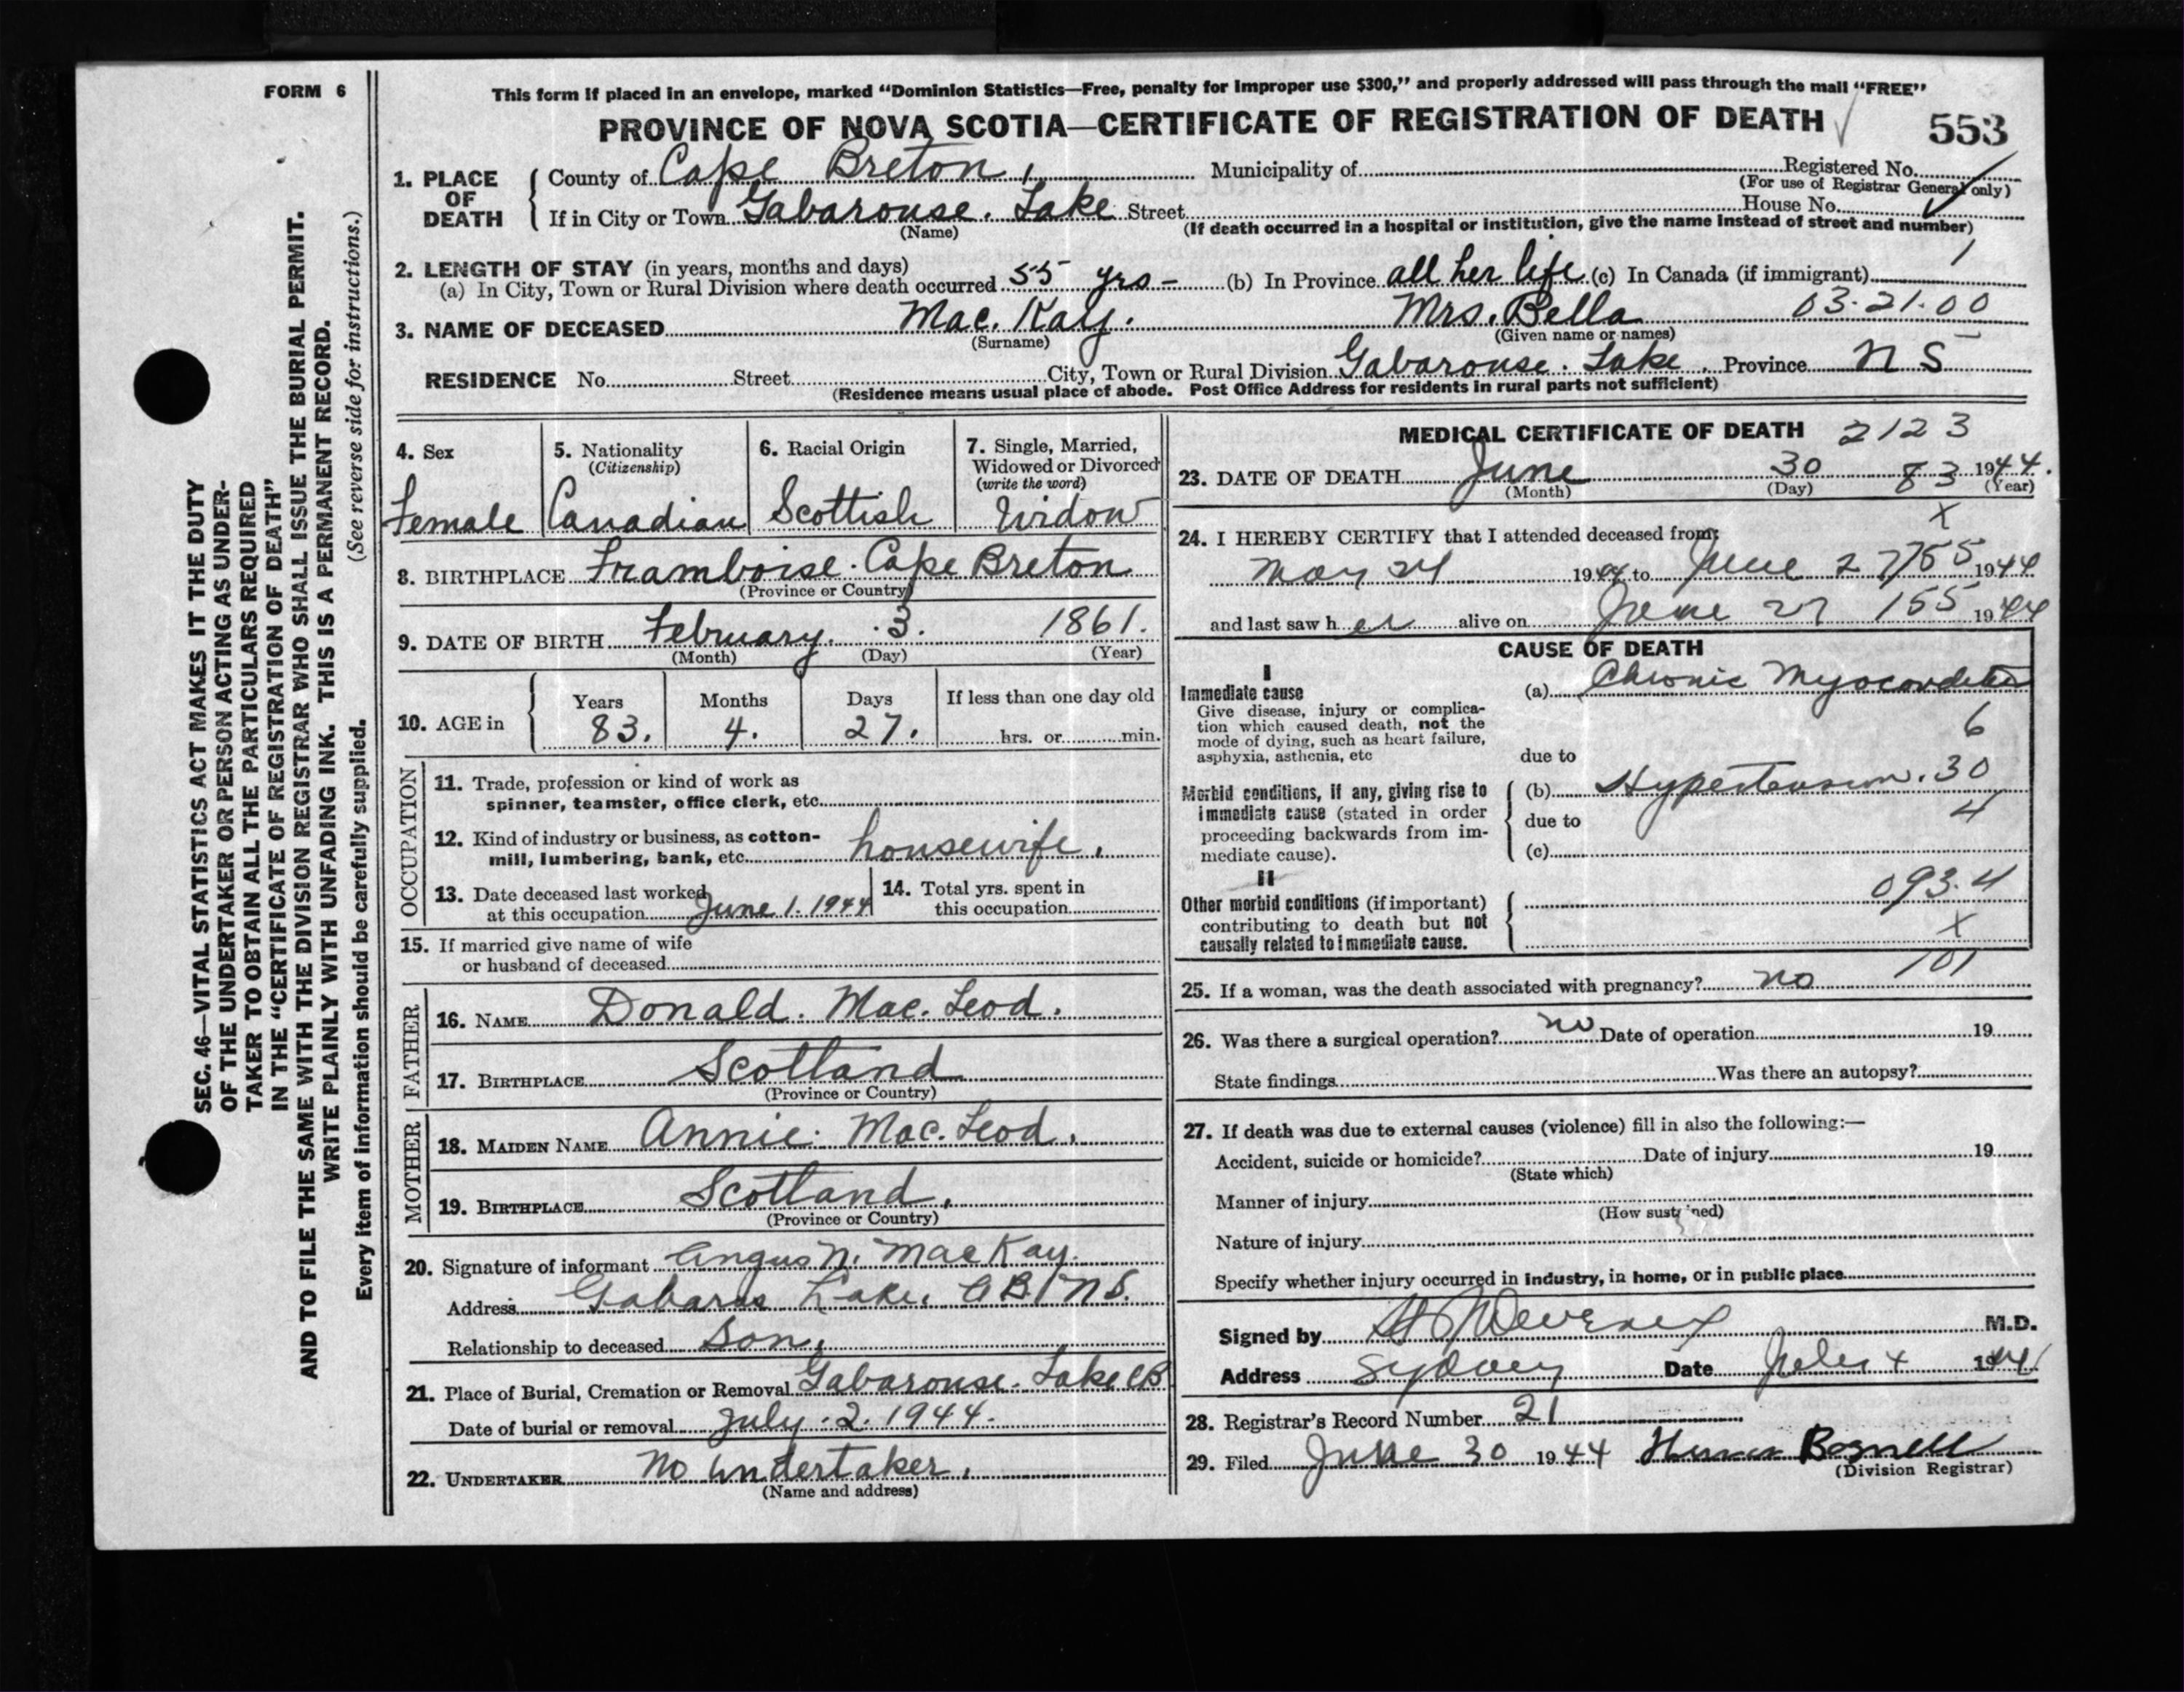 FORM 6
This form if placed in an envelope, marked "Dominion Statistics—Free, penalty for improper use $300," and properly addressed will pass through the mail "FREE"
PROVINCE OF NOVA SCOTIA—CERTIFICATE OF REGISTRATION OF DEATH
553
1. PLACE OF DEATH
County of Cape Breton, Municipality of Registered No.
(For use of Registrar General only)
If in City or Town Gabarouse. Lake Street House No.
(Name) (If death occurred in a hospital or institution, give the name instead of street and number)
2. LENGTH OF STAY (in years, months and days) 1
(a) In City, Town or Rural Division where death occurred 55 yrs - (b) In Province all her life (c) In Canada (if immigrant)
3. NAME OF DECEASED Mac. Kay. Mrs. Bella 03.21.00
(Surname) (Given name or names)
RESIDENCE No. Street City, Town or Rural Division Gabarouse. Lake. Province N S
(Residence means usual place of abode. Post Office Address for residents in rural parts not sufficient)
4. Sex
Female
5. Nationality
(Citizenship)
Canadian
6. Racial Origin
Scottish
7. Single, Married,
Widowed or Divorced
(write the word)
Widow
8. BIRTHPLACE Framboise. Cape Breton
(Province or Country)
9. DATE OF BIRTH February. 3. 1861.
(Month) (Day) (Year)
10. AGE in
Years Months Days If less than one day old
83. 4. 27. hrs. or min.
OCCUPATION
11. Trade, profession or kind of work as
spinner, teamster, office clerk, etc.
12. Kind of industry or business, as cotton-
mill, lumbering, bank, etc. housewife.
13. Date deceased last worked
at this occupation June 1. 1944
14. Total yrs. spent in
this occupation
15. If married give name of wife
or husband of deceased
FATHER
16. NAME Donald. Mac. Leod.
17. BIRTHPLACE Scotland
(Province or Country)
MOTHER
18. MAIDEN NAME Annie. Mac. Leod.
19. BIRTHPLACE Scotland.
(Province or Country)
20. Signature of informant Angus N. MacKay.
Address Gabarus Lake, C B. N S.
Relationship to deceased Son.
21. Place of Burial, Cremation or Removal Gabarouse. Lake CB
Date of burial or removal July. 2. 1944.
22. UNDERTAKER No undertaker.
(Name and address)
MEDICAL CERTIFICATE OF DEATH 2123
23. DATE OF DEATH June 30 83 1944.
(Month) (Day) (Year)
X
24. I HEREBY CERTIFY that I attended deceased from:
May 24 1944 to June 27 155 1944
and last saw h er alive on June 27 155 1944
CAUSE OF DEATH
I
Immediate cause
Give disease, injury or complica-
tion which caused death, not the
mode of dying, such as heart failure,
asphyxia, asthenia, etc
(a) Chronic Myocarditis
6
due to
Morbid conditions, if any, giving rise to
immediate cause (stated in order
proceeding backwards from im-
mediate cause).
(b) Hypertension. 30
due to 4
(c)
II
Other morbid conditions (if important)
contributing to death but not
causally related to immediate cause.
093.4
X
101
25. If a woman, was the death associated with pregnancy? no
26. Was there a surgical operation? no Date of operation 19
State findings Was there an autopsy?
27. If death was due to external causes (violence) fill in also the following:—
Accident, suicide or homicide? Date of injury 19
(State which)
Manner of injury
(How sustained)
Nature of injury
Specify whether injury occurred in industry, in home, or in public place
Signed by M.D.
Address Sydney Date July 4 1944
28. Registrar's Record Number 21
29. Filed June 30 1944 Bagnell
(Division Registrar)
SEC. 46—VITAL STATISTICS ACT MAKES IT THE DUTY
OF THE UNDERTAKER OR PERSON ACTING AS UNDER-
TAKER TO OBTAIN ALL THE PARTICULARS REQUIRED
IN THE "CERTIFICATE OF REGISTRATION OF DEATH"
AND TO FILE THE SAME WITH THE DIVISION REGISTRAR WHO SHALL ISSUE THE BURIAL PERMIT.
WRITE PLAINLY WITH UNFADING INK. THIS IS A PERMANENT RECORD.
Every item of information should be carefully supplied. (See reverse side for instructions.)